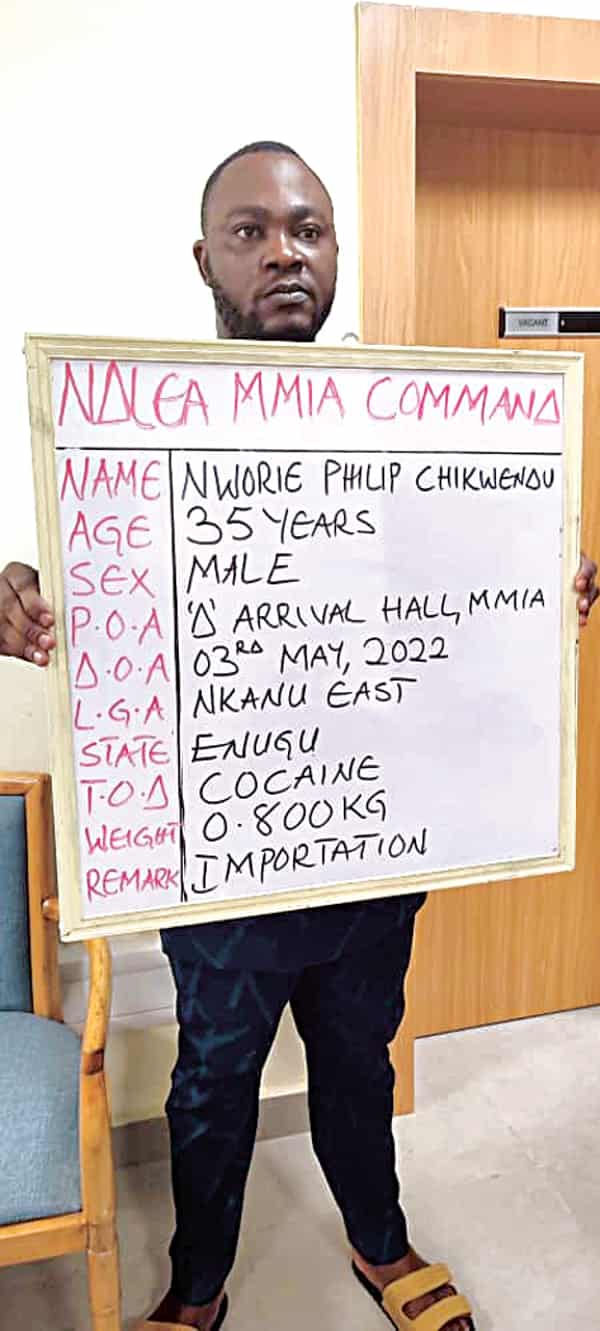 VACANT
NDLEA MMIA COMMAND
NAME NWORIE PHILIP CHIKWENDU
AGE 35 YEARS
SEX MALE
P.O.A 'D' ARRIVAL HALL, MMIA
D.O.A 03RD MAY, 2022
L.G.A NKANU EAST
STATE ENUGU
T.O.D COCAINE
WEIGHT 0.800KG
REMARK IMPORTATION